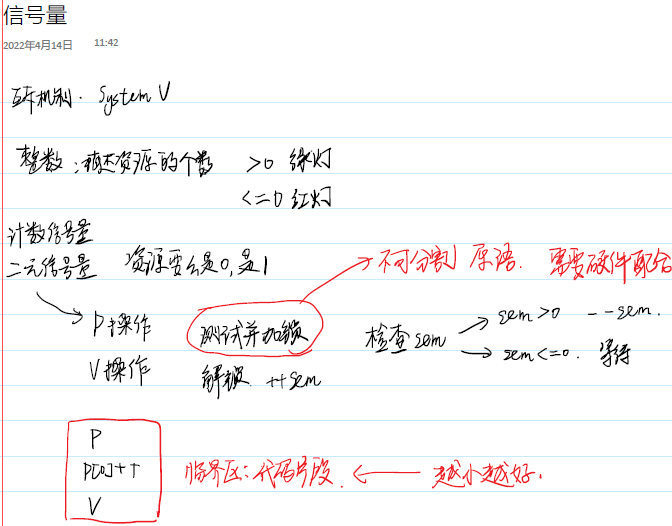 信号量
2022年4月14日 11:42
互斥机制. System V
整数:描述资源的个数 >0 绿灯
<=0 红灯
计数信号量
二元信号量 资源要么是0,是1
不可分割 原语. 需要硬件配合
P操作 测试并加锁 检查sem sem>0 --sem.
sem<=0. 等待
V操作 解锁 ++sem
P
P[0]++ 临界区:代码片段. 越小越好.
V